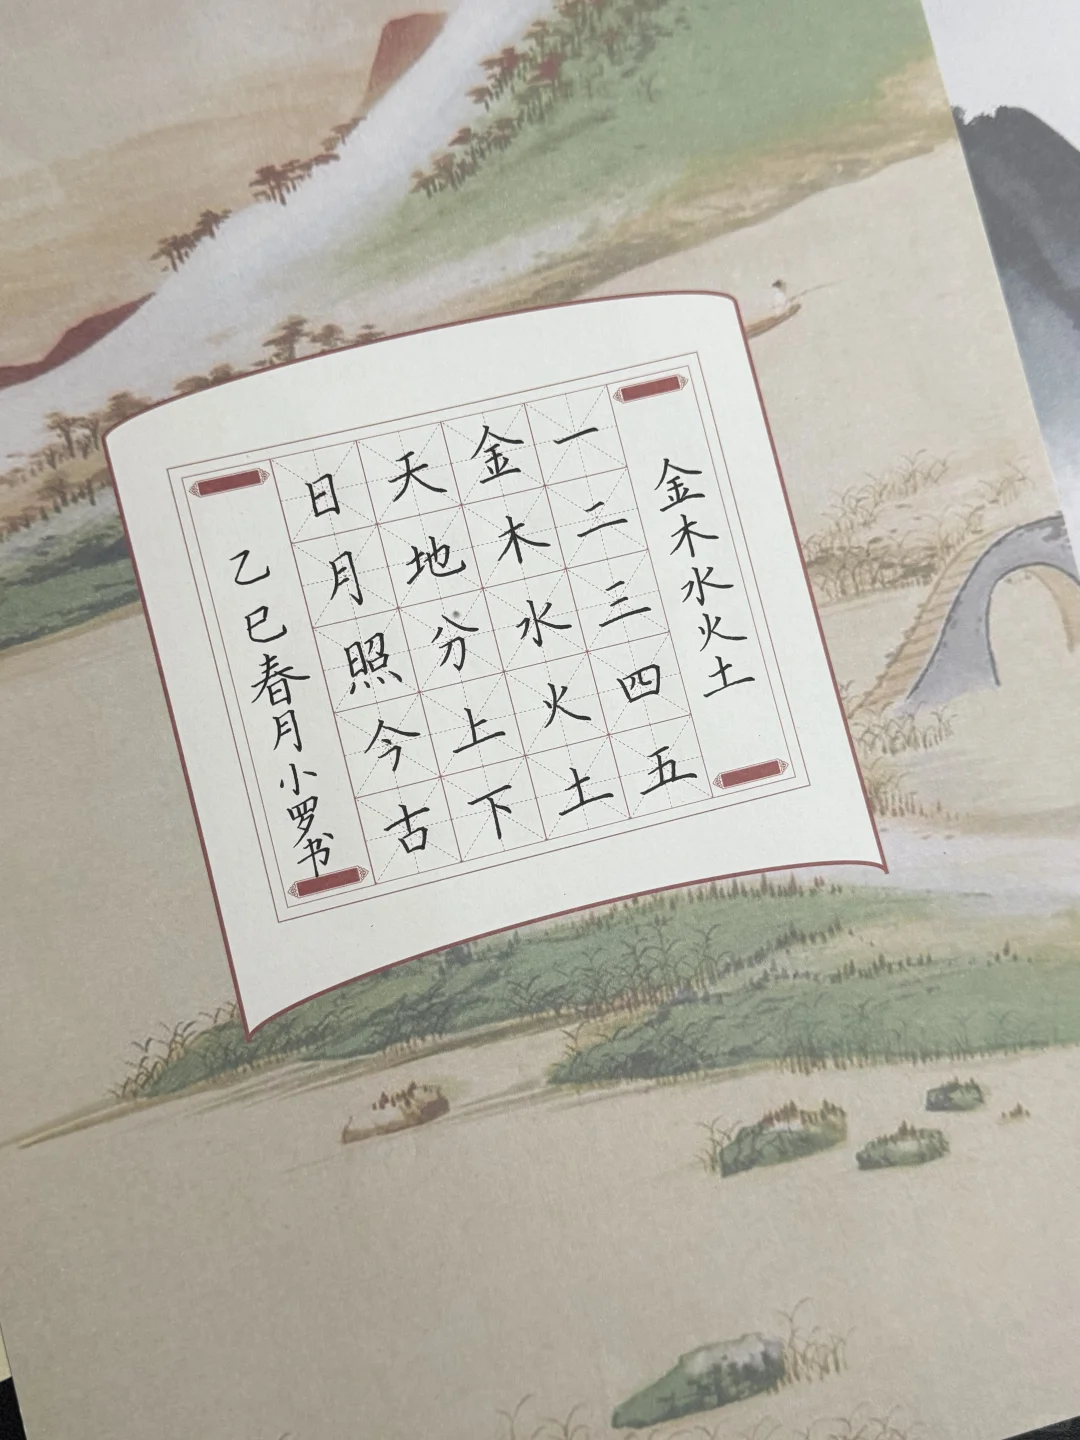 金木水火土
一二三四五
金木水火土
天地分上下
日月照今古
乙巳春月小罗书